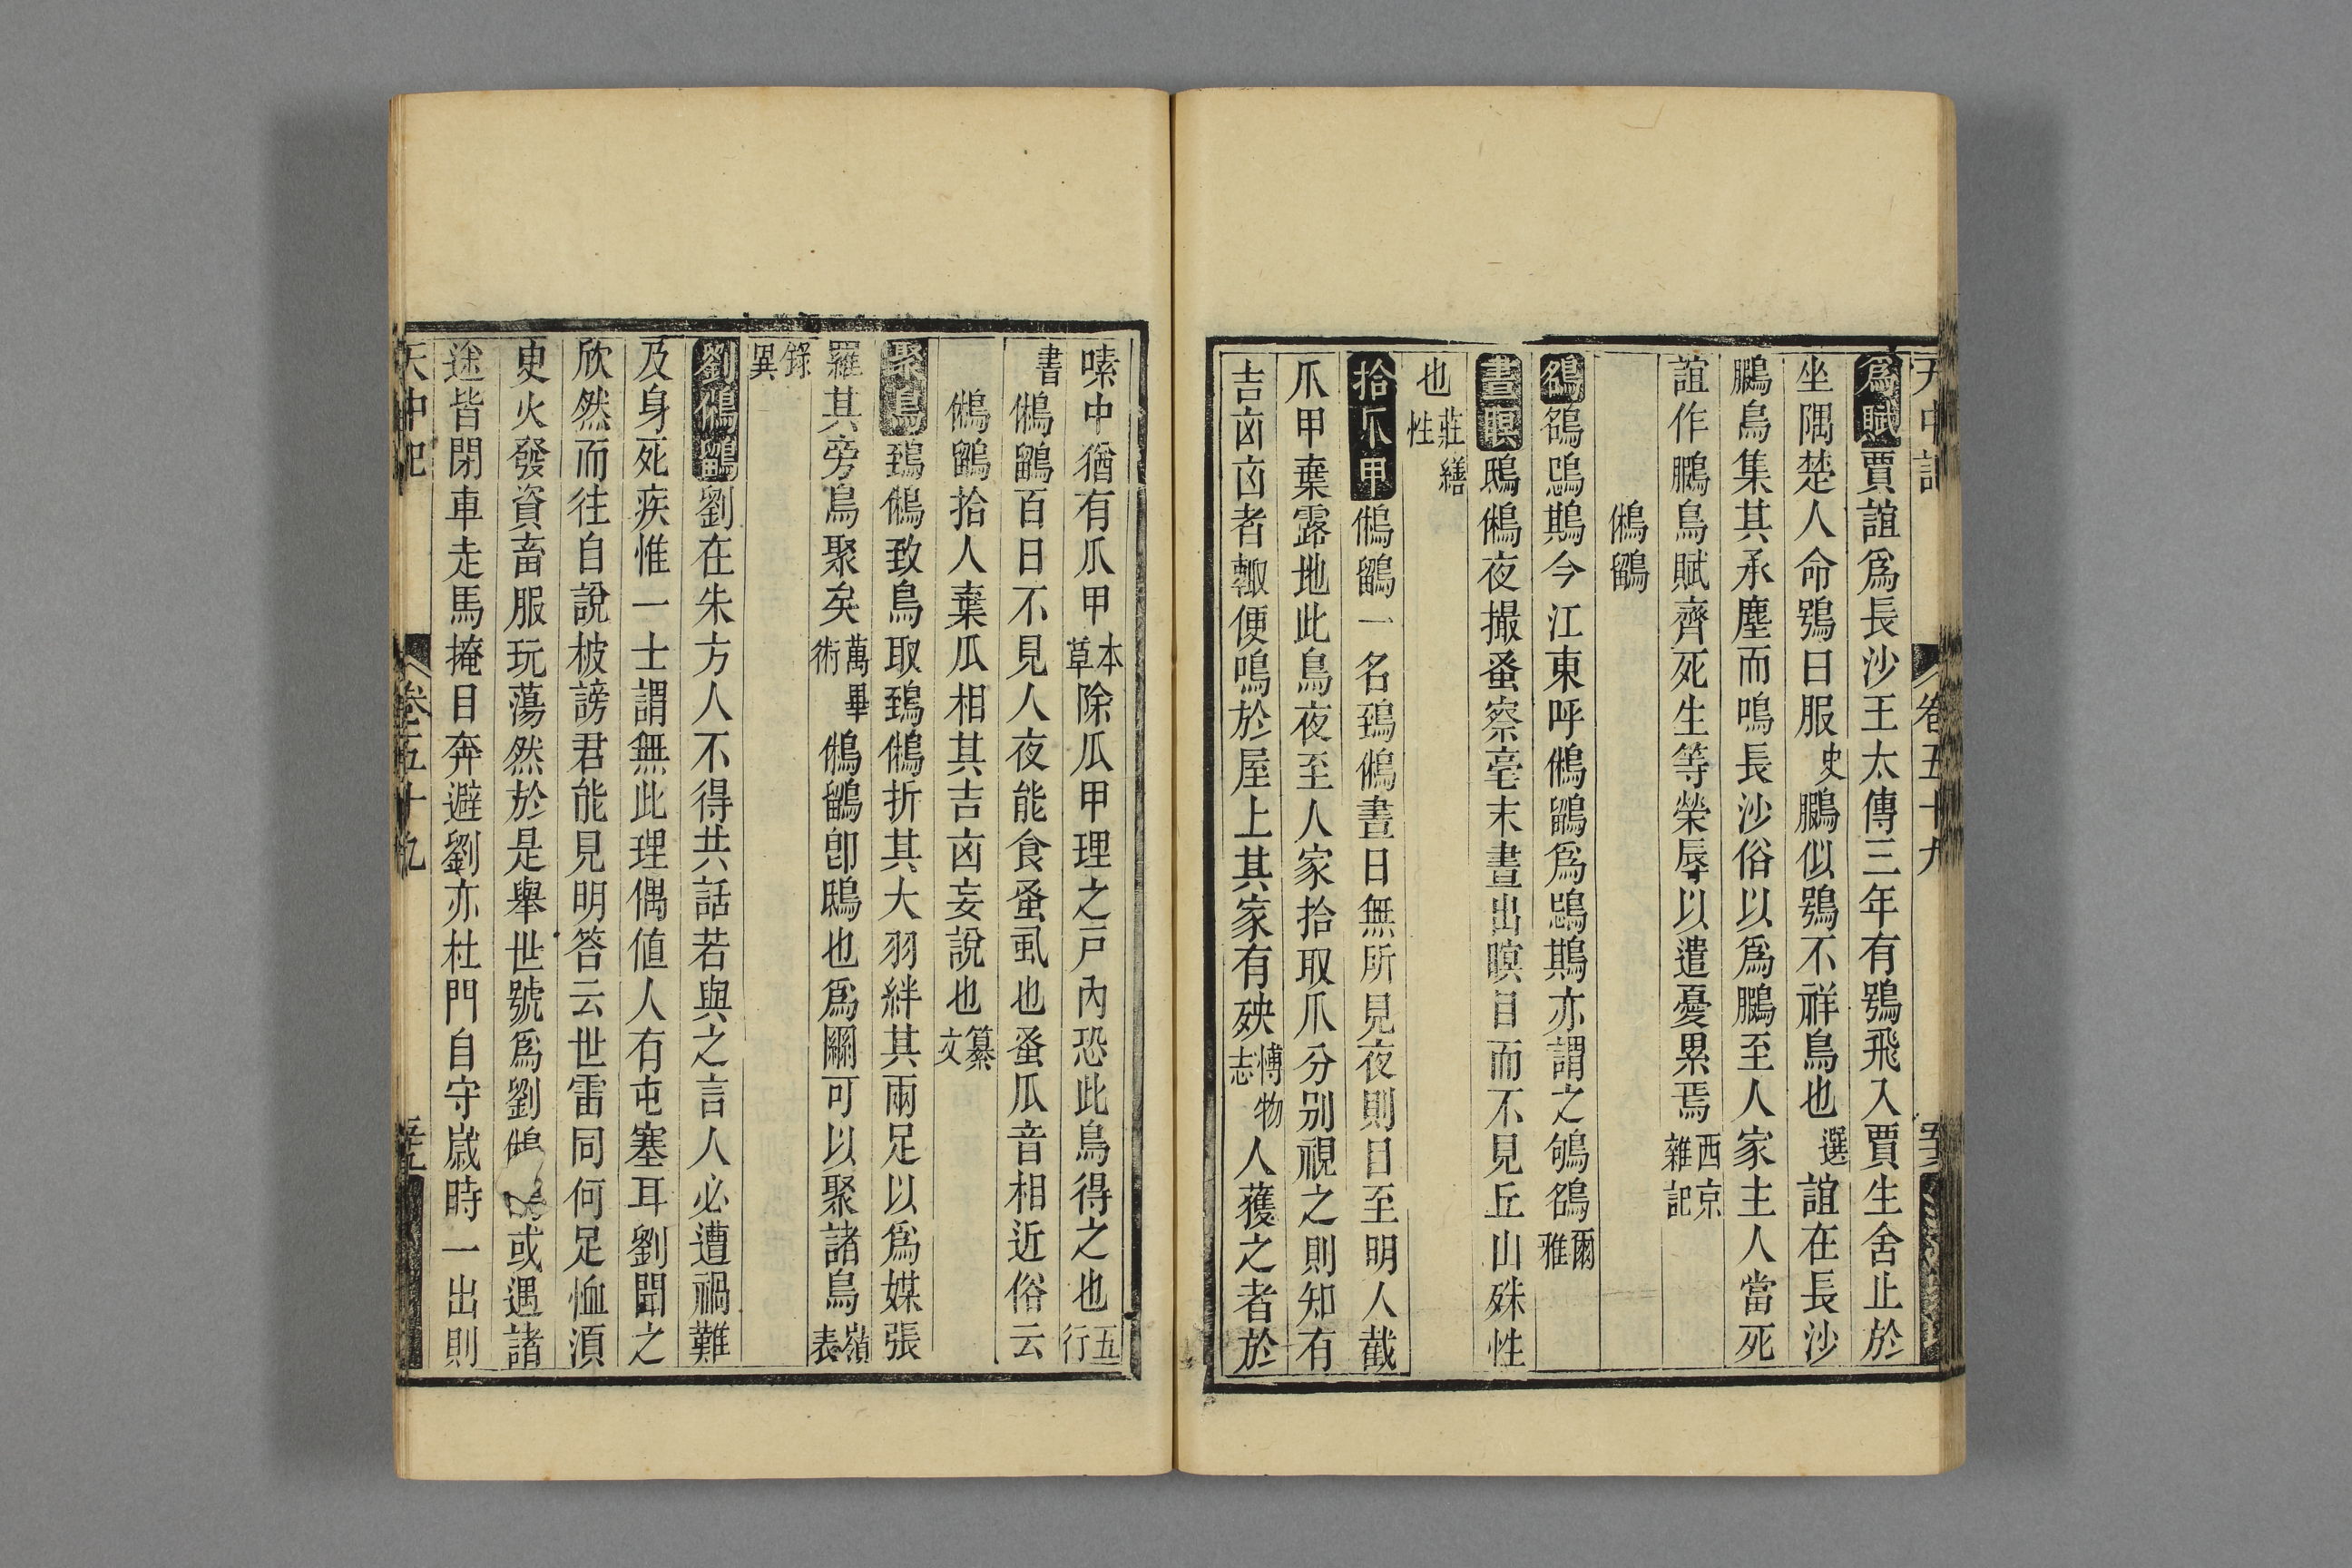 天中記 卷五十九
爲賦賈誼爲長沙王太傅三年有鴞飛入賈生舍止於
坐隅楚人命鴞曰服史鵩似鴞不祥鳥也選誼在長沙
鵩鳥集其承塵而鳴長沙俗以爲鵩至人家主人當死
誼作鵩鳥賦齊死生等榮辱以遣憂累焉西京雜記
鵂鶹
鵅鵅鵋䳢今江東呼鵂鶹爲鵋䳢亦謂之鴝鵅爾雅
晝瞑鴟鵂夜撮蚤察毫末晝出瞑目而不見丘山殊性
也莊繕性
拾爪甲鵂鶹一名鵄鵂晝日無所見夜則目至明人截
爪甲棄露地此鳥夜至人家拾取爪分別視之則知有
吉凶凶者輙便鳴於屋上其家有殃博物志人獲之者於
嗉中猶有爪甲本草除瓜甲理之戶內恐此鳥得之也五行
書鵂鶹百日不見人夜能食蚤虱也蚤瓜音相近俗云
鵂鶹拾人棄瓜相其吉凶妄說也纂文
聚鳥鵄鵂致鳥取鵄鵂折其大羽絆其兩足以爲媒張
羅其旁鳥聚矣萬畢術鵂鶹卽鴟也爲圝可以聚諸鳥嶺表
錄異
劉鵂鶹劉在朱方人不得共話若與之言人必遭禍難
及身死疾惟一士謂無此理偶値人有屯塞耳劉聞之
欣然而往自說被謗君能見明答云世雷同何足恤須
臾火發資畜服玩蕩然於是舉世號爲劉鵂鶹或遇諸
途皆閉車走馬掩目奔避劉亦杜門自守歲時一出則
天中記 卷五十九